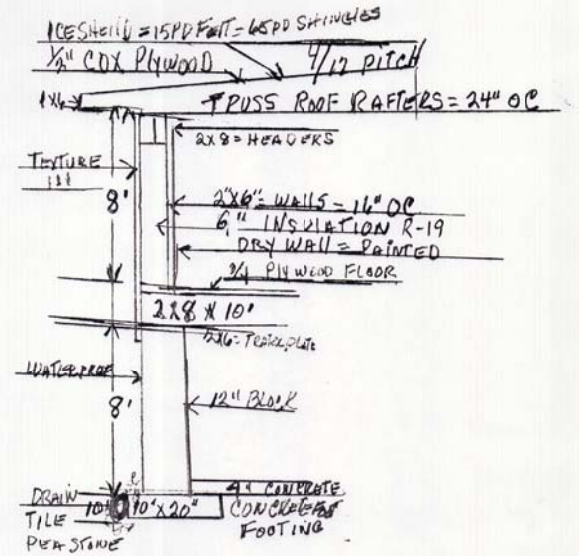 ICE SHEILD = 15PD FELT = 65PD SHINGLES
1/2" CDX PLYWOOD
4/12 PITCH
1X6
TRUSS ROOF RAFTERS = 24" OC
2X8 = HEADERS
TEXTURE
8'
2"X6" = WALLS = 16" OC
6" INSULATION R-19
DRY WALL = PAINTED
3/4 PLYWOOD FLOOR
2X8 X 10'
2X6 =
WATERPROOF
8'
12" BLOCK
DRAIN
TILE
PEA STONE
10"
10"X20"
4" CONCRETE
CONCRETE
FOOTING